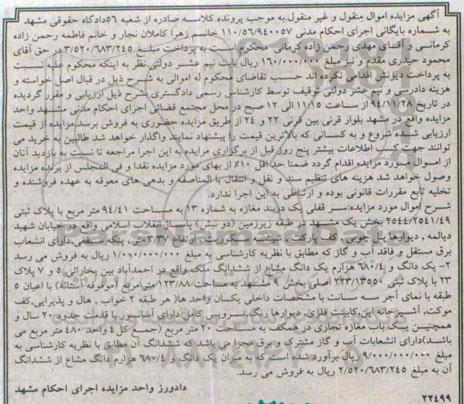 آگهی مزایده اموال منقول و غیر منقول.به موجب پرونده کلاسه صادره از شعبه ۵۶دادگاه حقوقی مشهد
به شماره بایگانی اجرای احکام مدنی ۱۱۰/۵۶/۹۴۰۰۵۷ خانم زهرا کاملان نجار و خانم فاطمه رحمن زاده
کرمانی و آقای مهدی رحمن زاده کرمانی محکوم است به پرداخت مبلغ ۳/۵۲۰/۶۸۳/۲۴۵ در حق آقای
محمود حیدری مقدم و نیز مبلغ ۱۶۰/۰۰۰/۰۰۰ ریال بابت نیم عشر دولتی نظر به اینکه محکوم علیه نسبت
به پرداخت دیونش اقدامی نکرده اند حسب تقاضای محکوم له اموالی به شرح ذیل در قبال اصل خواسته و
هزینه دادرسی و نیم عشر دولتی توقیف توسط کارشناس رسمی دادگستری به شرح ذیل ارزیابی و مقرر گردیده
در تاریخ ۹۴/۱۱/۲۸ از ساعت ۱۱/۱۵ الی ۱۲ صبح در محل مجتمع قضائی اجرای احکام مدنی مشهد واحد
مزایده واقع در مشهد بلوار قرنی بین قرنی ۲۲ و ۲۴ از طریق مزایده حضوری به فروش برسد.مزایده از قیمت
ارزیابی شده شروع و به کسانی که بالاترین قیمت را پیشنهاد نمایند واگذار خواهد شد. طالبین به خرید می
توانند جهت کسب اطلاعات بیشتر پنج روز قبل از برگزاری مزایده به این اجرا مراجعه تا نسبت به بازدید آنان
از اموال مورد مزایده اقدام گردد ضمنا حداقل ۱۰٪ از بهای مورد مزایده نقدا و فی المجلس از برنده مزایده
وصول خواهد شد هزینه های تنظیم سند و نقل و انتقال بالمناصفه و بدهی های معوقه به عهده فروشنده و
تخلیه تابع مقررات قانونی بوده و ارتباطی به این اجرا ندارد.
شرح اموال مورد مزایده: سر قفلی یک دربند مغازه به شماره ۱۳ به مساحت ۹۴/۴۱ متر مربع با پلاک ثبتی
۲۵۴۴/۲۵۴۱/۴۹ بخش یک مشهد در طبقه زیرزمین (دو نیش) پاساژ انقلاب اسلامی واقع در خیابان شهید
دیالمه ، دیوارها پنل چوبی، کف پارکت، شیشه سکوریت، ارتفاع ۳/۷ متر، پنکه سقفی، دارای انشعاب
برق مستقل و فاقد آب و گاز که مطابق با نظریه کارشناسی به مبلغ ۱/۰۰۰/۰۰۰/۰۰۰ ریال به فروش می رسد
۲- یک دانگ و ۶۸۰/۴ هزارم یک دانگ مشاع از ششدانگ ملک واقع در احمدآباد بین بخارائی ۵ و ۷ پلاک
۲۳ با پلاک ثبتی ۲۳۳/۱۳۵۵۰ اصلی بخش ۹ مشهد به مساحت ۱۲۳/۸۸ مترمربع (موقوفه آستانه) با اعیان ۵
طبقه با نمای آجر سه سانت با مشخصات داخلی یکسان واحد ها( هر طبقه ۲ خواب ، هال و پذیرایی،کف
موکت، آشپزخانه اپن،کابینت فلزی، دیوارها رنگ،سرویس کامل دارای آسانسور با قدمت حدود ۲۰ سال و
همچنین یک باب مغازه تجاری در همکف به مساحت ۲۰ متر مربع (جمع کل ۶ واحد ۴۸۰ متر مربع می
باشد)دارای انشعابات آب و گاز مشترک و برق مجزا می باشد که ششدانگ آن مطابق با نظریه کارشناسی به
مبلغ ۹/۰۰۰/۰۰۰/۰۰۰ ریال برآورد شده است که به میزان یک دانگ و ۶۸۰/۴ هزارم دانگ مشاع از ششدانگ
آن به مبلغ ۲/۵۲۰/۶۸۳/۲۴۵ ریال به فروش می رسد.
دادورز واحد مزایده اجرای احکام مشهد
۲۲۴۹۹